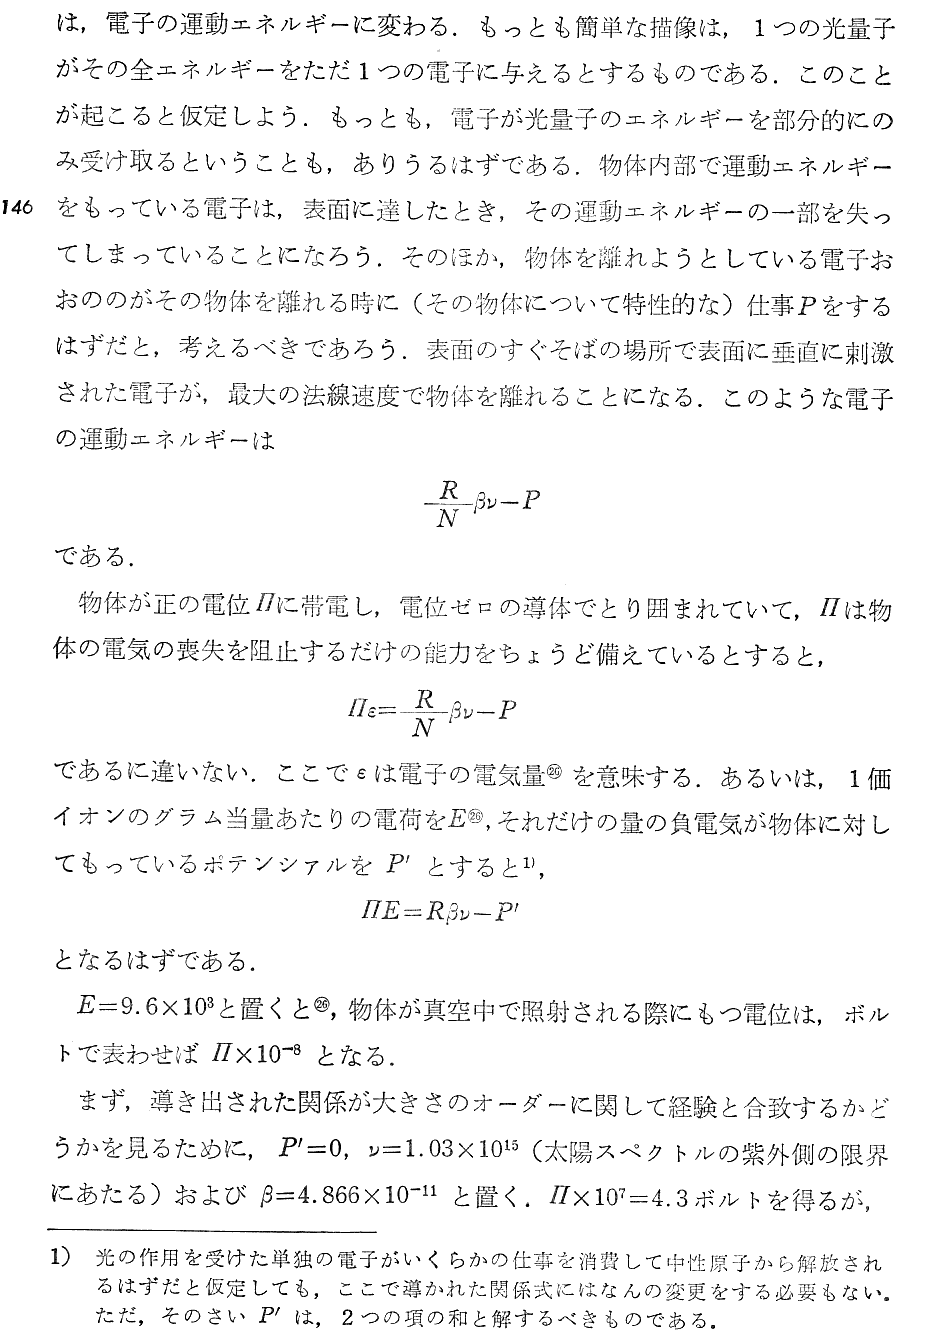 は，電子の運動エネルギーに変わる．もっとも簡単な描像は，1つの光量子
がその全エネルギーをただ1つの電子に与えるとするものである．このこと
が起こると仮定しよう．もっとも，電子が光量子のエネルギーを部分的にの
み受け取るということも，ありうるはずである．物体内部で運動エネルギー
146 をもっている電子は，表面に達したとき，その運動エネルギーの一部を失っ
てしまっていることになろう．そのほか，物体を離れようとしている電子お
おののがその物体を離れる時に（その物体について特性的な）仕事Pをする
はずだと，考えるべきであろう．表面のすぐそばの場所で表面に垂直に刺激
された電子が，最大の法線速度で物体を離れることになる．このような電子
の運動エネルギーは
R/N βν−P
である．
物体が正の電位Πに帯電し，電位ゼロの導体でとり囲まれていて，Πは物
体の電気の喪失を阻止するだけの能力をちょうど備えているとすると，
Πε=R/N βν−P
であるに違いない．ここでεは電子の電気量㉖を意味する．あるいは，1価
イオンのグラム当量あたりの電荷をE㉖，それだけの量の負電気が物体に対し
てもっているポテンシァルを P′ とすると1)，
ΠE=Rβν−P′
となるはずである．
E=9.6×10³と置くと㉖，物体が真空中で照射される際にもつ電位は，ボル
トで表わせば Π×10⁻⁸ となる．
まず，導き出された関係が大きさのオーダーに関して経験と合致するかど
うかを見るために，P′=0，ν=1.03×10¹⁵（太陽スペクトルの紫外側の限界
にあたる）および β=4.866×10⁻¹¹ と置く．Π×10⁷=4.3ボルトを得るが，
1) 光の作用を受けた単独の電子がいくらかの仕事を消費して中性原子から解放され
るはずだと仮定しても，ここで導かれた関係式にはなんの変更をする必要もない．
ただ，そのさい P′ は，2つの項の和と解するべきものである．